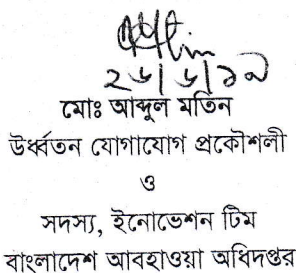 ২৬/৬/১৯
মোঃ আব্দুল মতিন
উর্ধ্বতন যোগাযোগ প্রকৌশলী
ও
সদস্য, ইনোভেশন টিম
বাংলাদেশ আবহাওয়া অধিদপ্তর